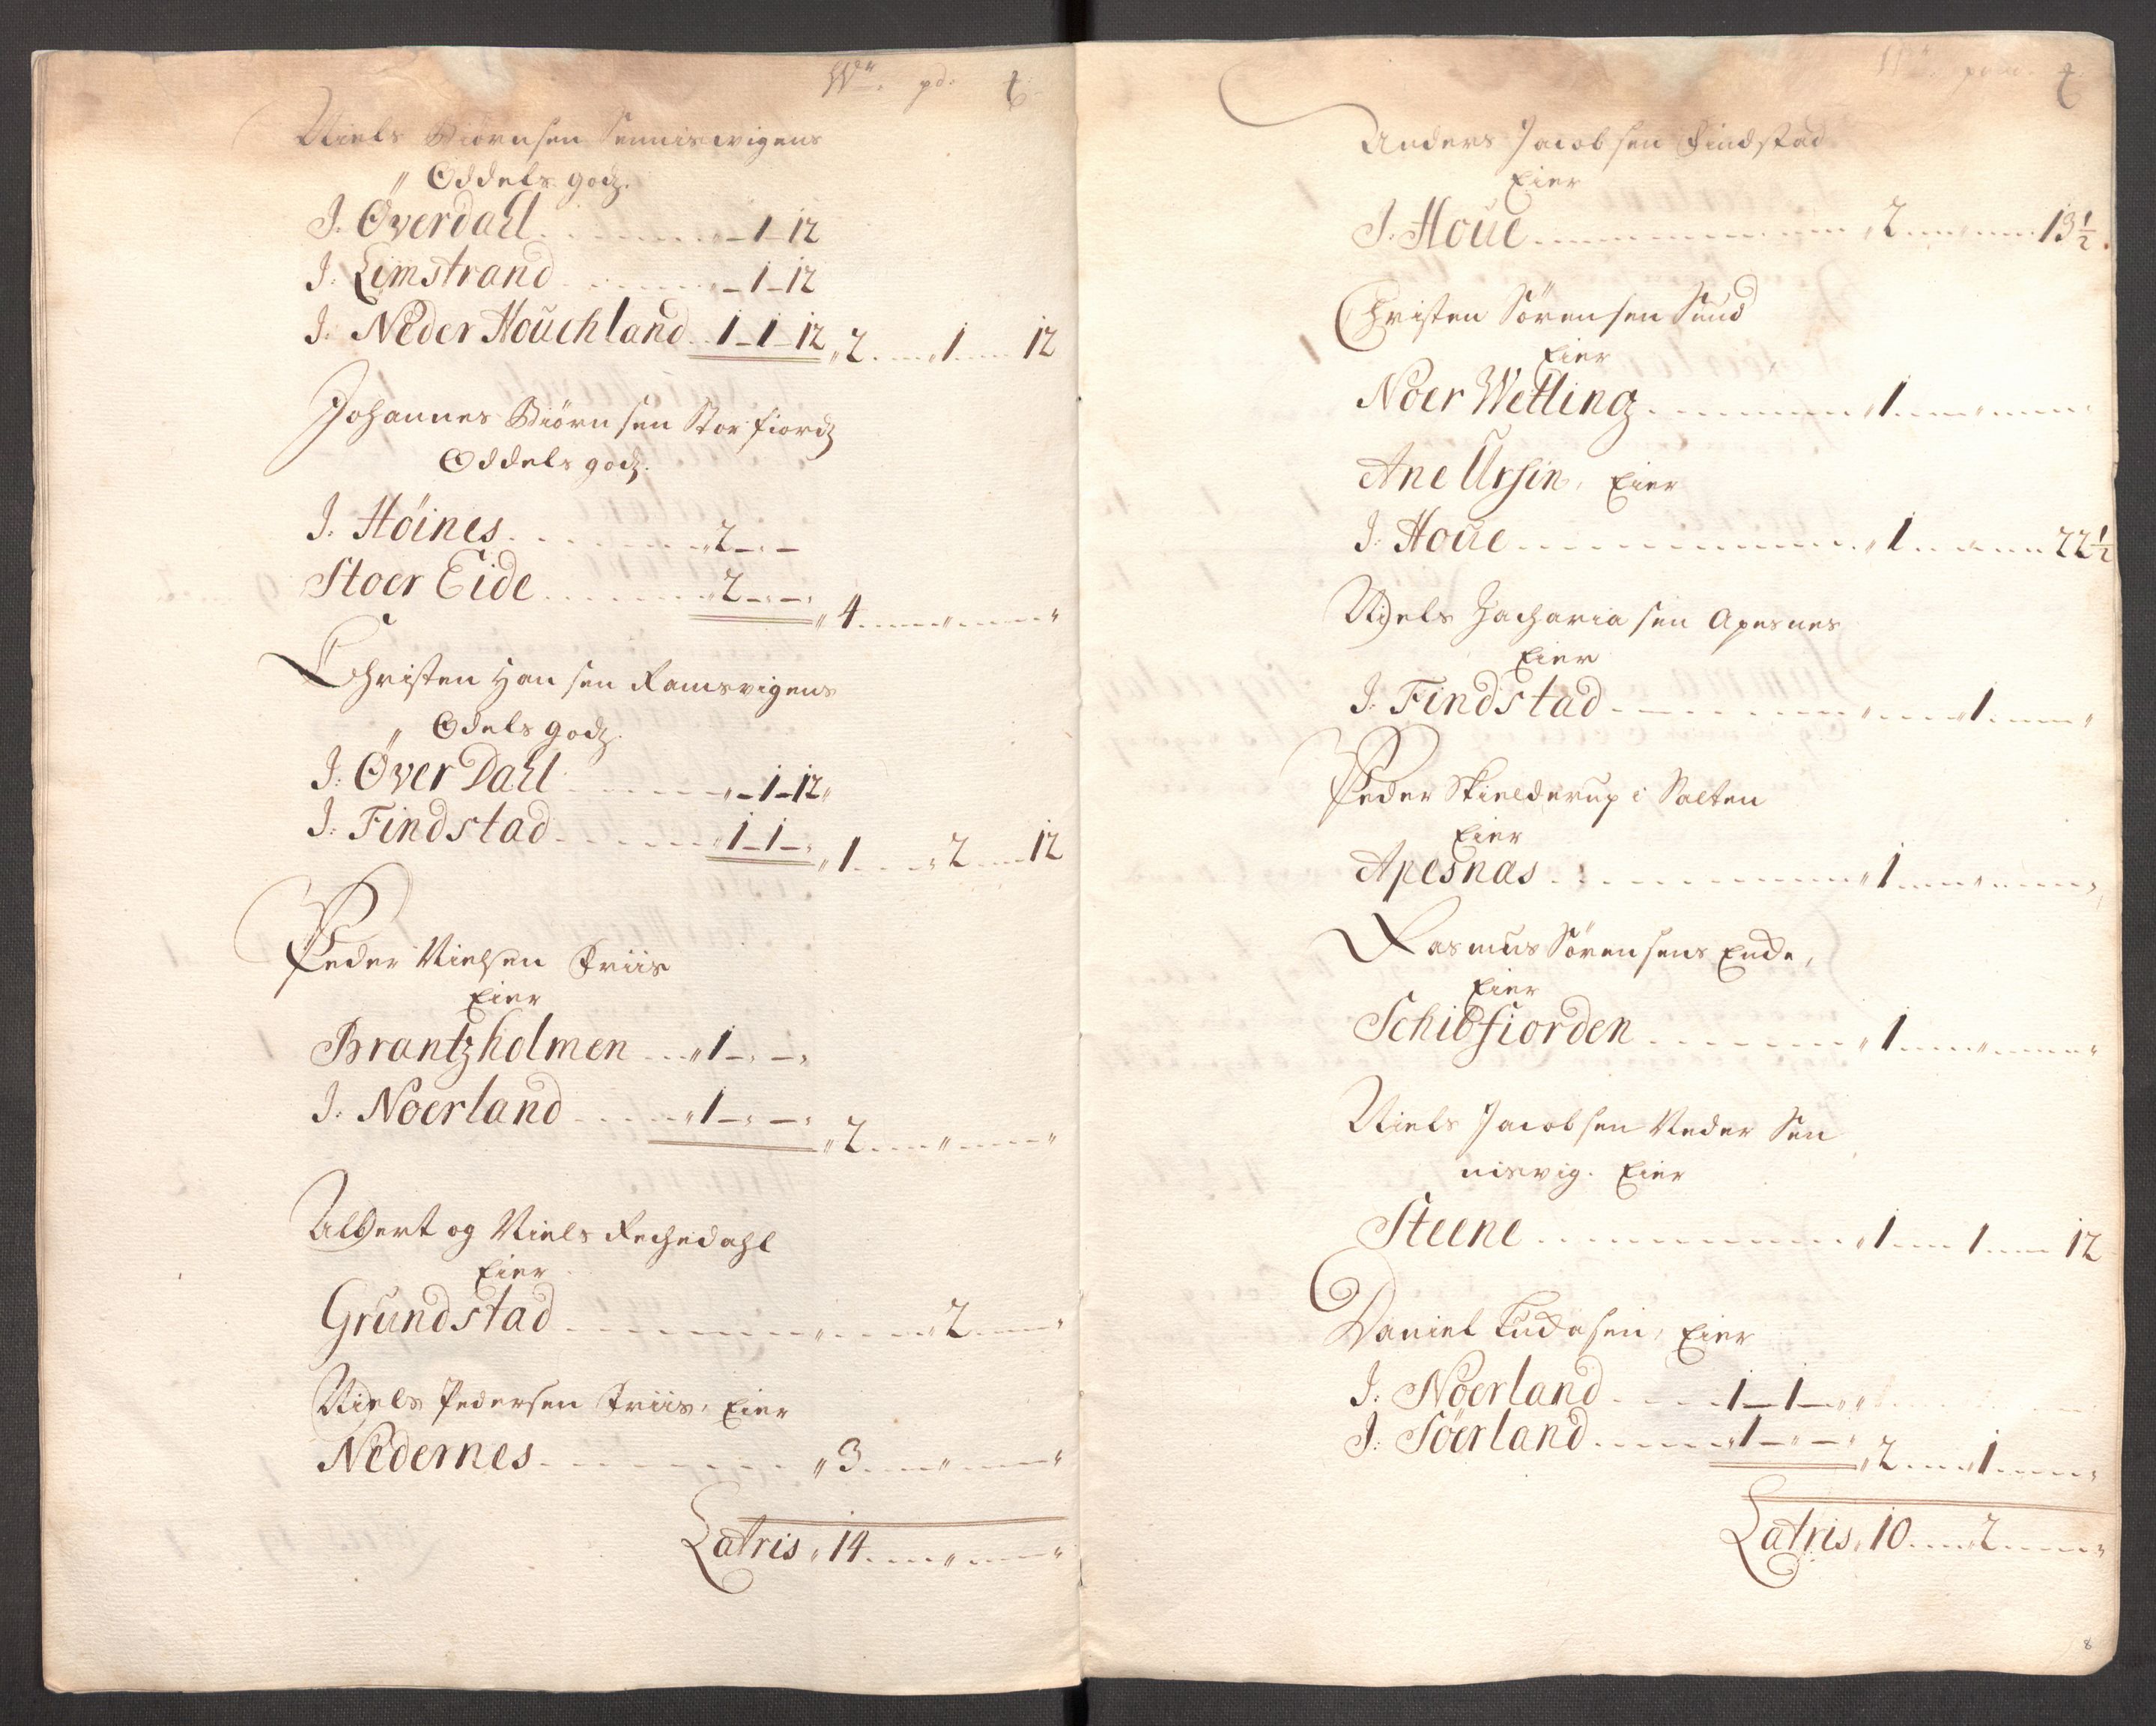 W: pd: ℔
Niels Biörnsen Senniswigens
" Oddels godz.
J. Øverdahl - 1 - 12
J: Limstrand - 1 - 12
J: Neder Houchland 1 - 1 - 12 " 2 " 1 12
Johannes Biörnsen Storfiordz
Oddels godz.
J: Höines " 2 - " -
Stoer Eide " 2 - " - " " 4 " "
Christen Hansen Ramsvigens
" Odels godz.
J: Øver Dahl " - 1 - 12 "
J: Findstad " 1 - 1 - " " 1 " 2 12
Peder Nielsen Friis
Eier
Brantzholmen " 1 - " - "
J: Noerland " 1 - " - " " 2 " "
Albert og Niels Rechedahl
Eier
Grundstad " " 2 "
Niels Pedersen Friis, Eier
Nedernes " 3 " "
Latris " 14 " "
W: pund ℔
Anders Jacobsen Findstad
Eier
J. Houe " 2 " 13½
Christen Sörensen Sund
Eier
Noer Wetting " 1 " "
Ane Ursin, Eier
J: Houe " 1 " 22½
Niels Zachariasen Apesnes
Eier
J: Findstad " " 1 "
Peder Skielderup i Salten
Eier
Apesnas " 1 " "
Rasmus Sörensens Encke,
Eier
Schibfiorden " 1 " "
Niels Jacobsen Neder Sen
nisvig. Eier
Steene " 1 1 12
Daniel Eier
J: Noerland 1 - 1 - "
J: Söerland " 1 - " - " " 2 " 1 "
Latris " 10 " 2 "
8